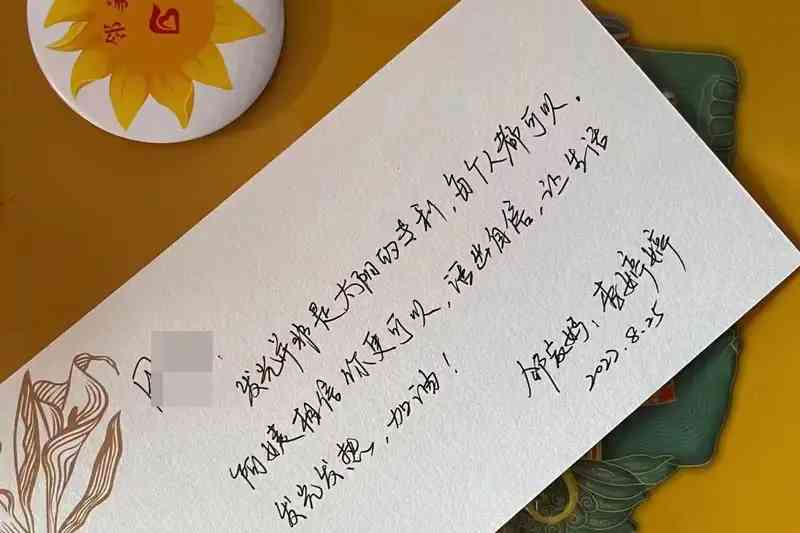 邻家
发光并非是太阳的专利,每个人都可以.
阿姨相信你更可以,活出自信,让生活
发光发热,加油!
邻家妈:婷婷
2022.8.25